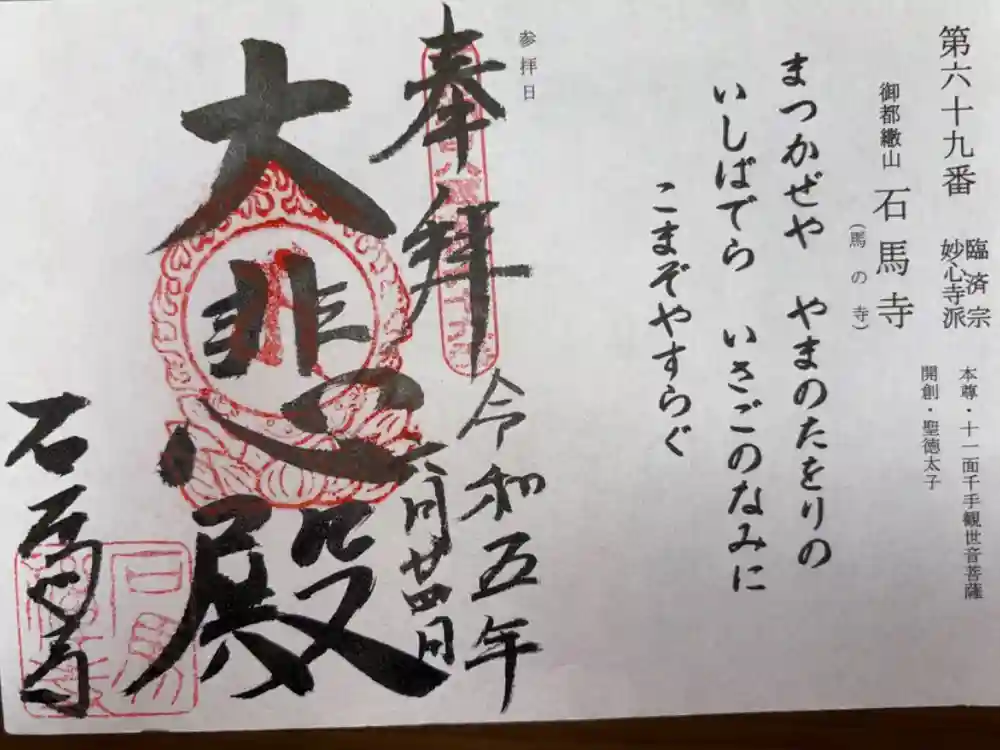 第六十九番
臨済宗
妙心寺派
本尊・十一面千手観世音菩薩
開創・聖徳太子
御都繖山 石馬寺
(馬の寺)
まつかぜや やまのたをりの
いしばでら いさごのなみに
こまぞやすらぐ
参拝日
奉拝
令和五年
六月廿四日
大悲殿
石馬寺